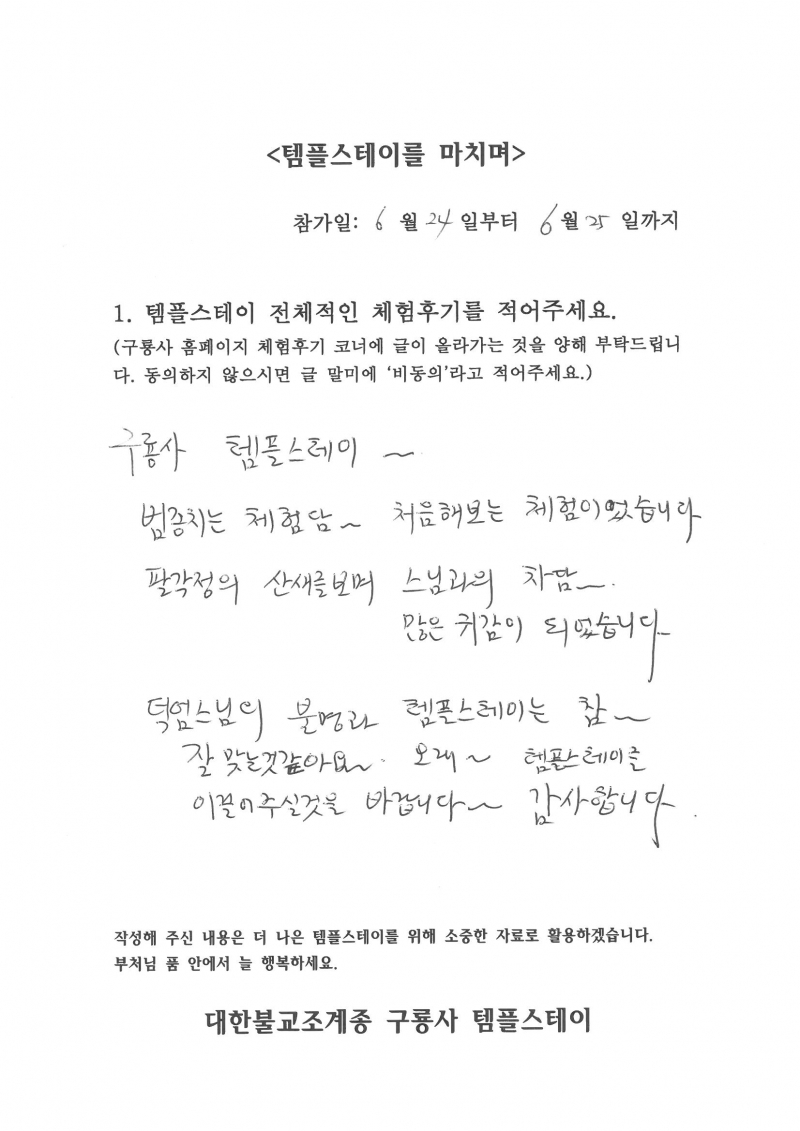 <템플스테이를 마치며>
참가일: 6 월 24 일부터 6 월 25 일까지
1. 템플스테이 전체적인 체험후기를 적어주세요.
(구룡사 홈페이지 체험후기 코너에 글이 올라가는 것을 양해 부탁드립니
다. 동의하지 않으시면 글 말미에 '비동의'라고 적어주세요.)
구룡사 템플스테이 ~
범종치는 체험담~ 처음해보는 체험이었습니다
팔각정의 산새를보며 스님과의 차담~.
많은 귀감이 되었습니다
덕엄스님의 불명과 템플스테이는 참~
잘 맞는것같아요~. 오래~ 템플스테이를
이끌어주실것을 바랍니다~ 감사합니다.
작성해 주신 내용은 더 나은 템플스테이를 위해 소중한 자료로 활용하겠습니다.
부처님 품 안에서 늘 행복하세요.
대한불교조계종 구룡사 템플스테이